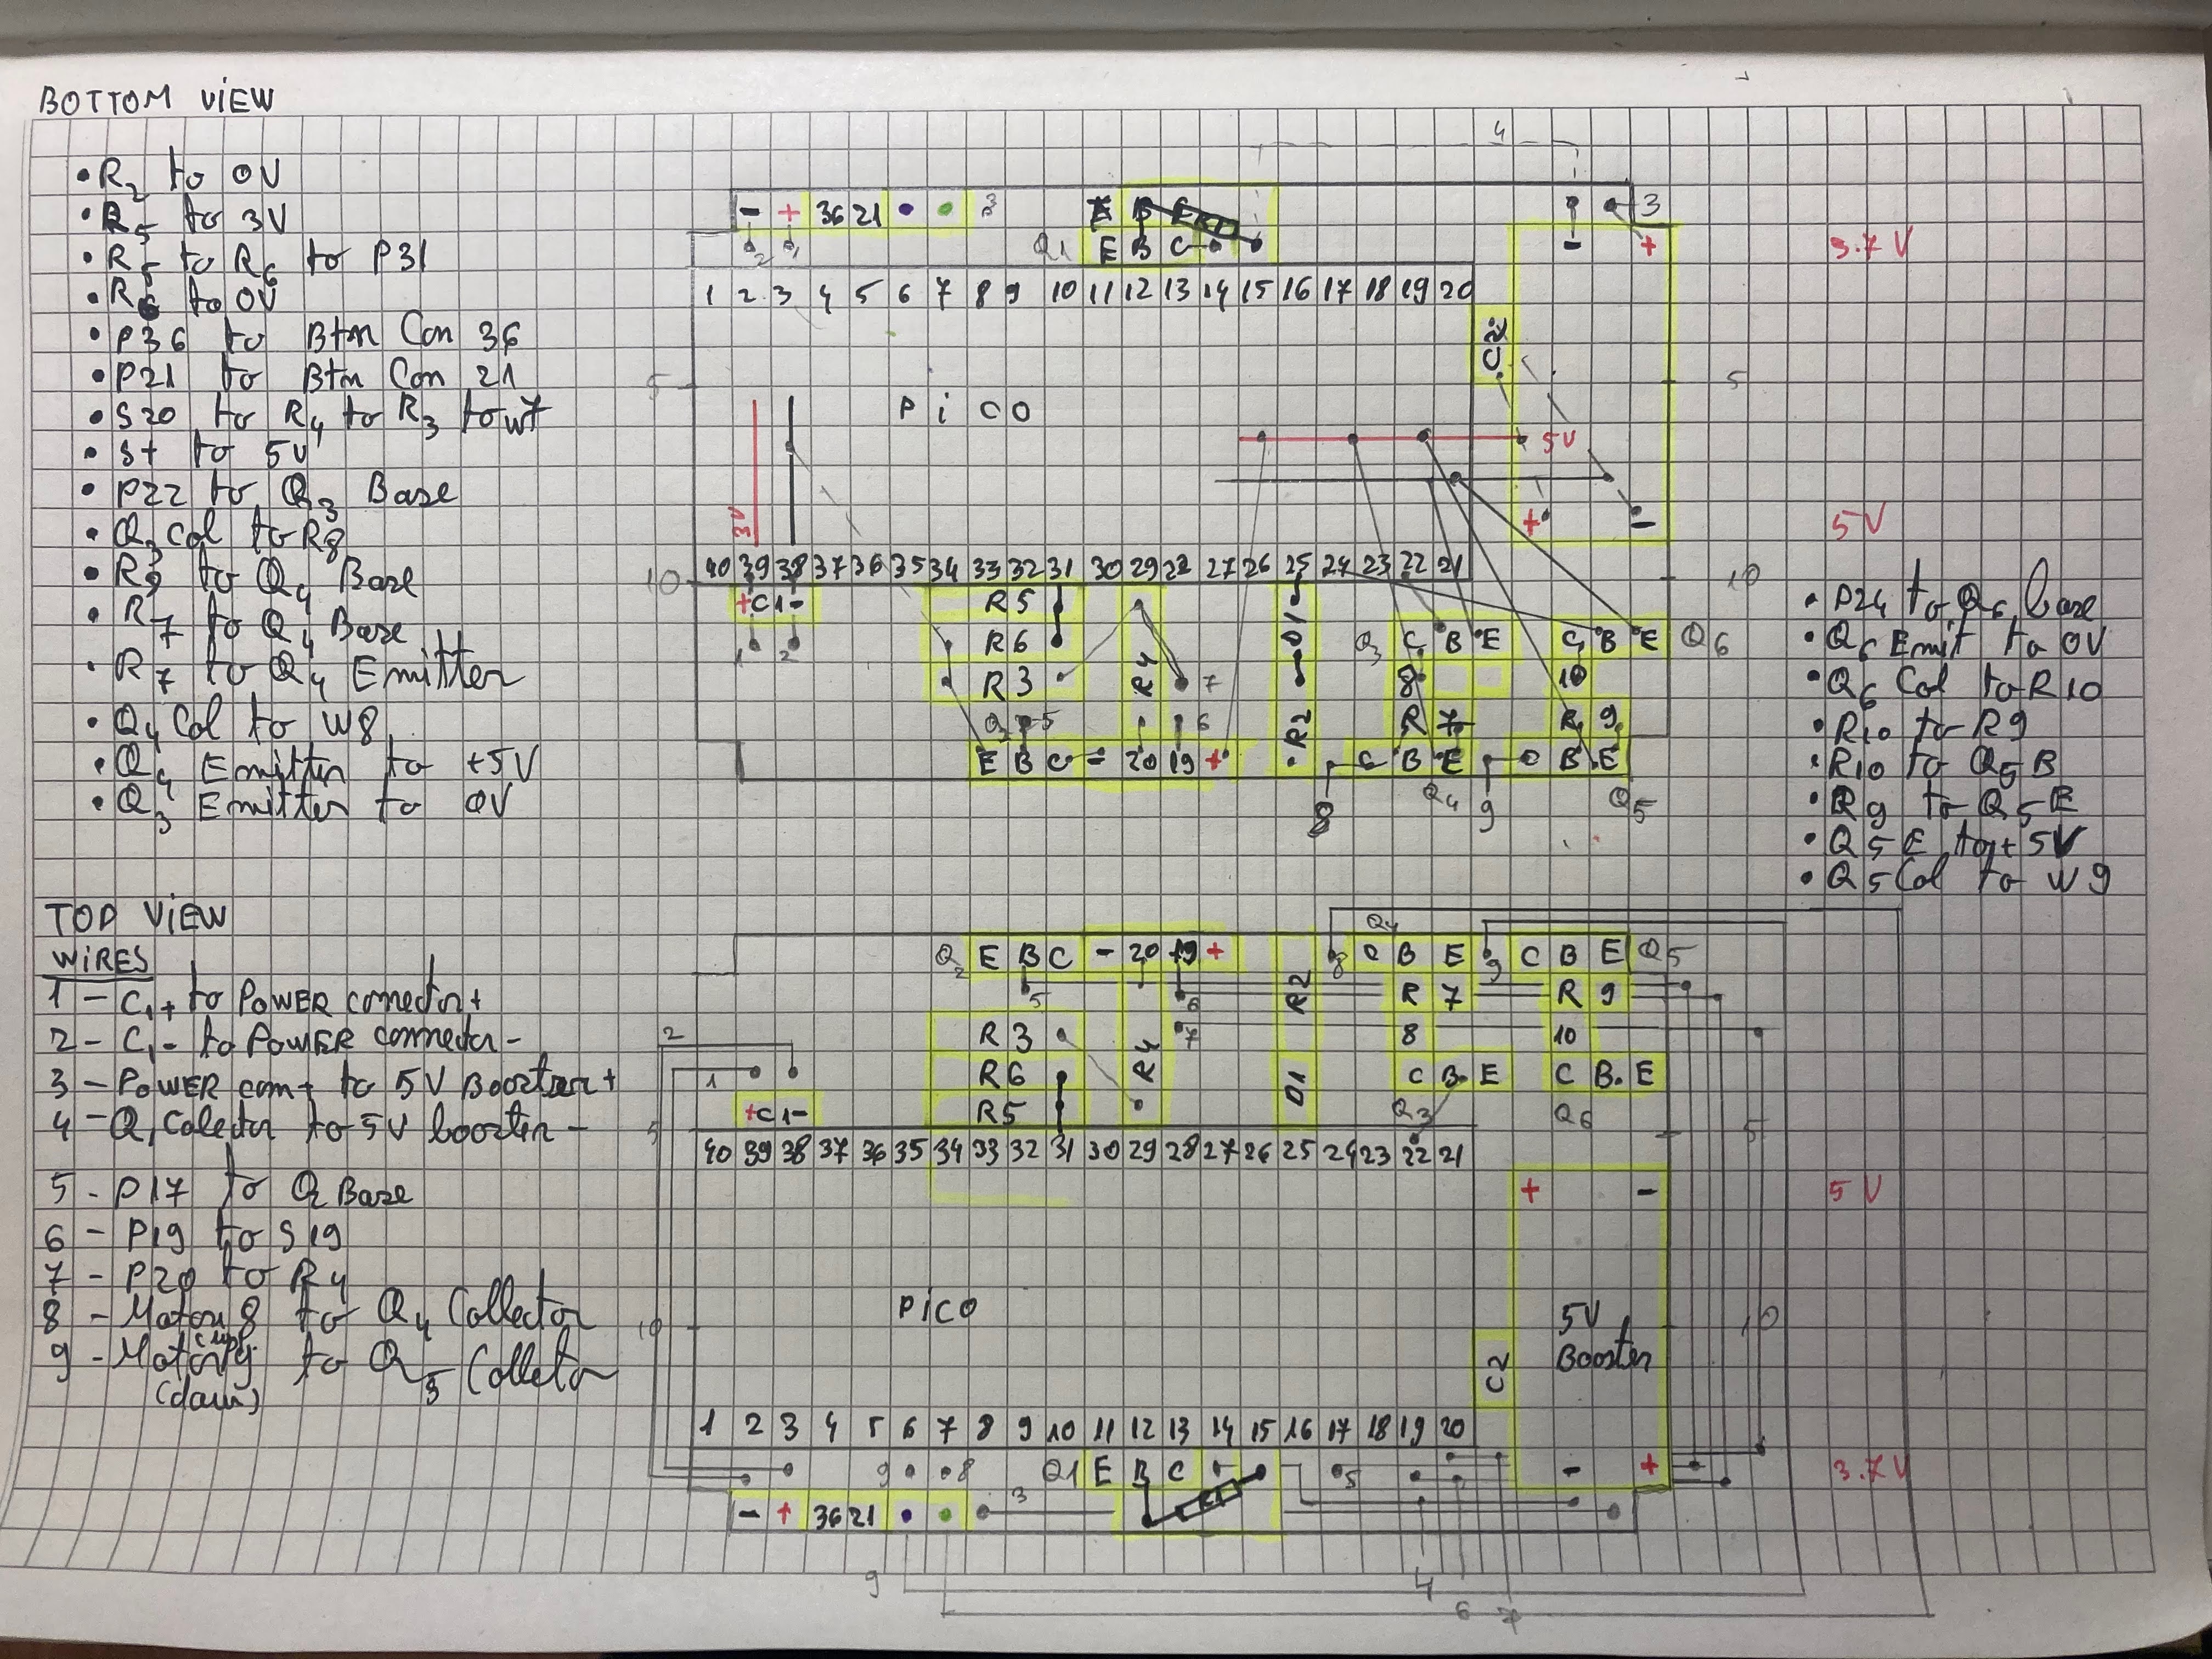 BOTTOM VIEW
• R2 to 0V
• R5 to 3V
• R5 to R6 to P31
• R6 to 0V
• P36 to Btm Con 36
• P21 to Btm Con 21
• S20 to R4 to R3 to W7
• S+ to 5V
• P22 to Q3 Base
• Q3 Col to R8
• R8 to Q4 Base
• R7 to Q4 Base
• R7 to Q4 Emitter
• Q4 Col to W8
• Q4 Emitter to +5V
• Q3 Emitter to 0V
4
- + 36 21 3
E B C R1
Q1 E B C
- + 3
3.7 V
2 1
1 2 3 4 5 6 7 8 9 10 11 12 13 14 15 16 17 18 19 20
C2
5 Pico 5
5V
3V
+ -
5V
40 39 38 37 36 35 34 33 32 31 30 29 28 27 26 25 24 23 22 21
10 10
+C1- R5 D1
1 2 R6 Q3 C B E C B E Q6
R3 R4 7 8 10
Q2 5 6 R2 R 7 R 9
E B C - 20 19 + C B E C B E
8 Q4 9 Q5
• P24 to Q6 base
• Q6 Emit to 0V
• Q6 Col to R10
• R10 to R9
• R10 to Q5 B
• R9 to Q5 E
• Q5 E to + 5V
• Q5 Col to W9
TOP VIEW
WIRES
1 - C1+ to POWER conector+
2 - C1- to POWER connector-
3 - POWER con+ to 5V Booster +
4 - Q1 Colector to 5V booster -
5 - P17 to Q2 Base
6 - P19 to S19
7 - P20 to R4
8 - Motor 8 (up) to Q4 Collector
9 - Motor 9 (down) to Q5 Colletor
Q4
Q2 E B C - 20 19 + 8 C B E 9 C B E Q5
5 6 R2 R 7 R 9
2 R3 7 8 10
1 R6 R4 C B E C B E
+C1- R5 D1 Q3 Q6
5 5
40 39 38 37 36 35 34 33 32 31 30 29 28 27 26 25 24 23 22 21
+ -
5V
Pico
5V
Booster
10 10
C2
1 2 3 4 5 6 7 8 9 10 11 12 13 14 15 16 17 18 19 20
9 8 Q1 E B C 5 - +
3.7 V
- + 36 21 3 R1
9 4
6 7